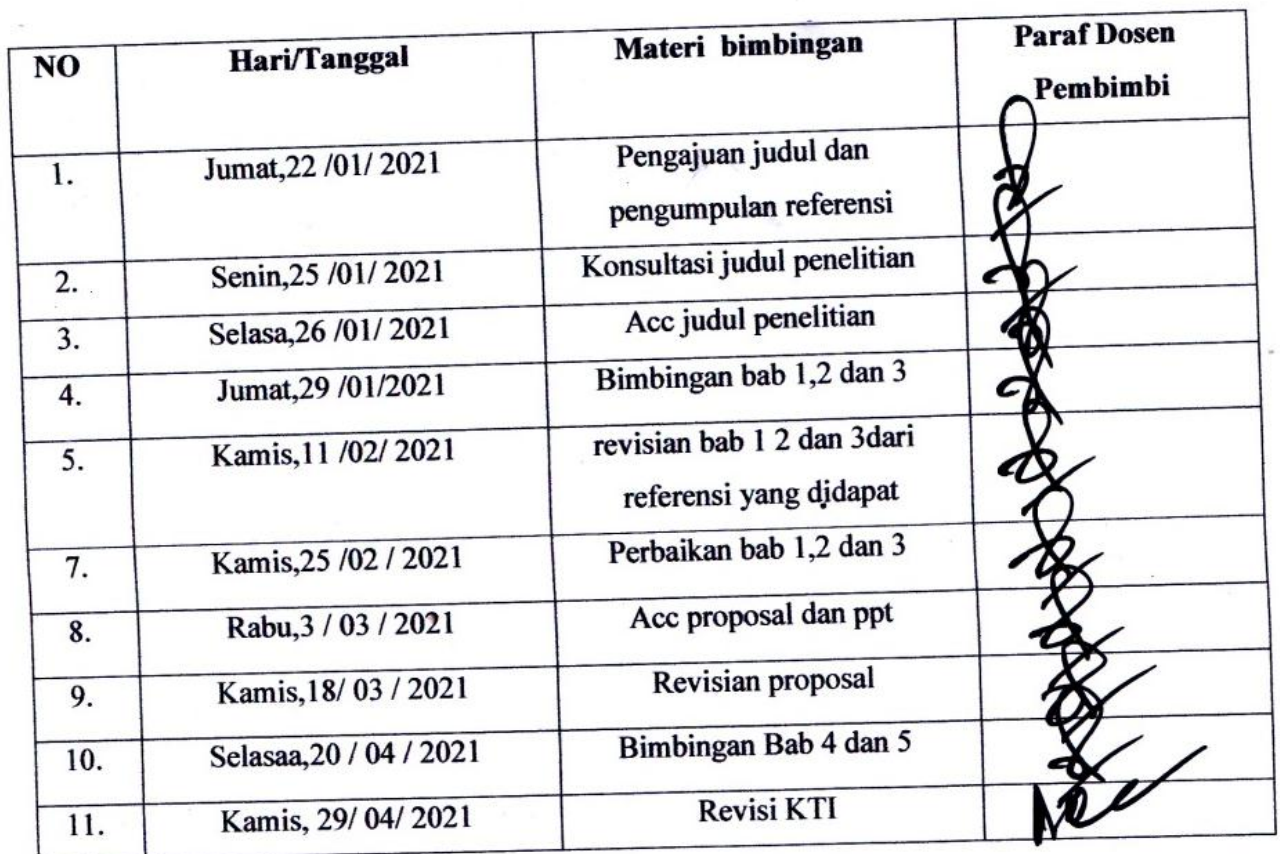 NO Hari/Tanggal Materi bimbingan Paraf Dosen
Pembimbi
1. Jumat,22 /01/ 2021 Pengajuan judul dan
pengumpulan referensi
2. Senin,25 /01/ 2021 Konsultasi judul penelitian
3. Selasa,26 /01/ 2021 Acc judul penelitian
4. Jumat,29 /01/2021 Bimbingan bab 1,2 dan 3
5. Kamis,11 /02/ 2021 revisian bab 1 2 dan 3dari
referensi yang didapat
7. Kamis,25 /02 / 2021 Perbaikan bab 1,2 dan 3
8. Rabu,3 / 03 / 2021 Acc proposal dan ppt
9. Kamis,18/ 03 / 2021 Revisian proposal
10. Selasaa,20 / 04 / 2021 Bimbingan Bab 4 dan 5
11. Kamis, 29/ 04/ 2021 Revisi KTI